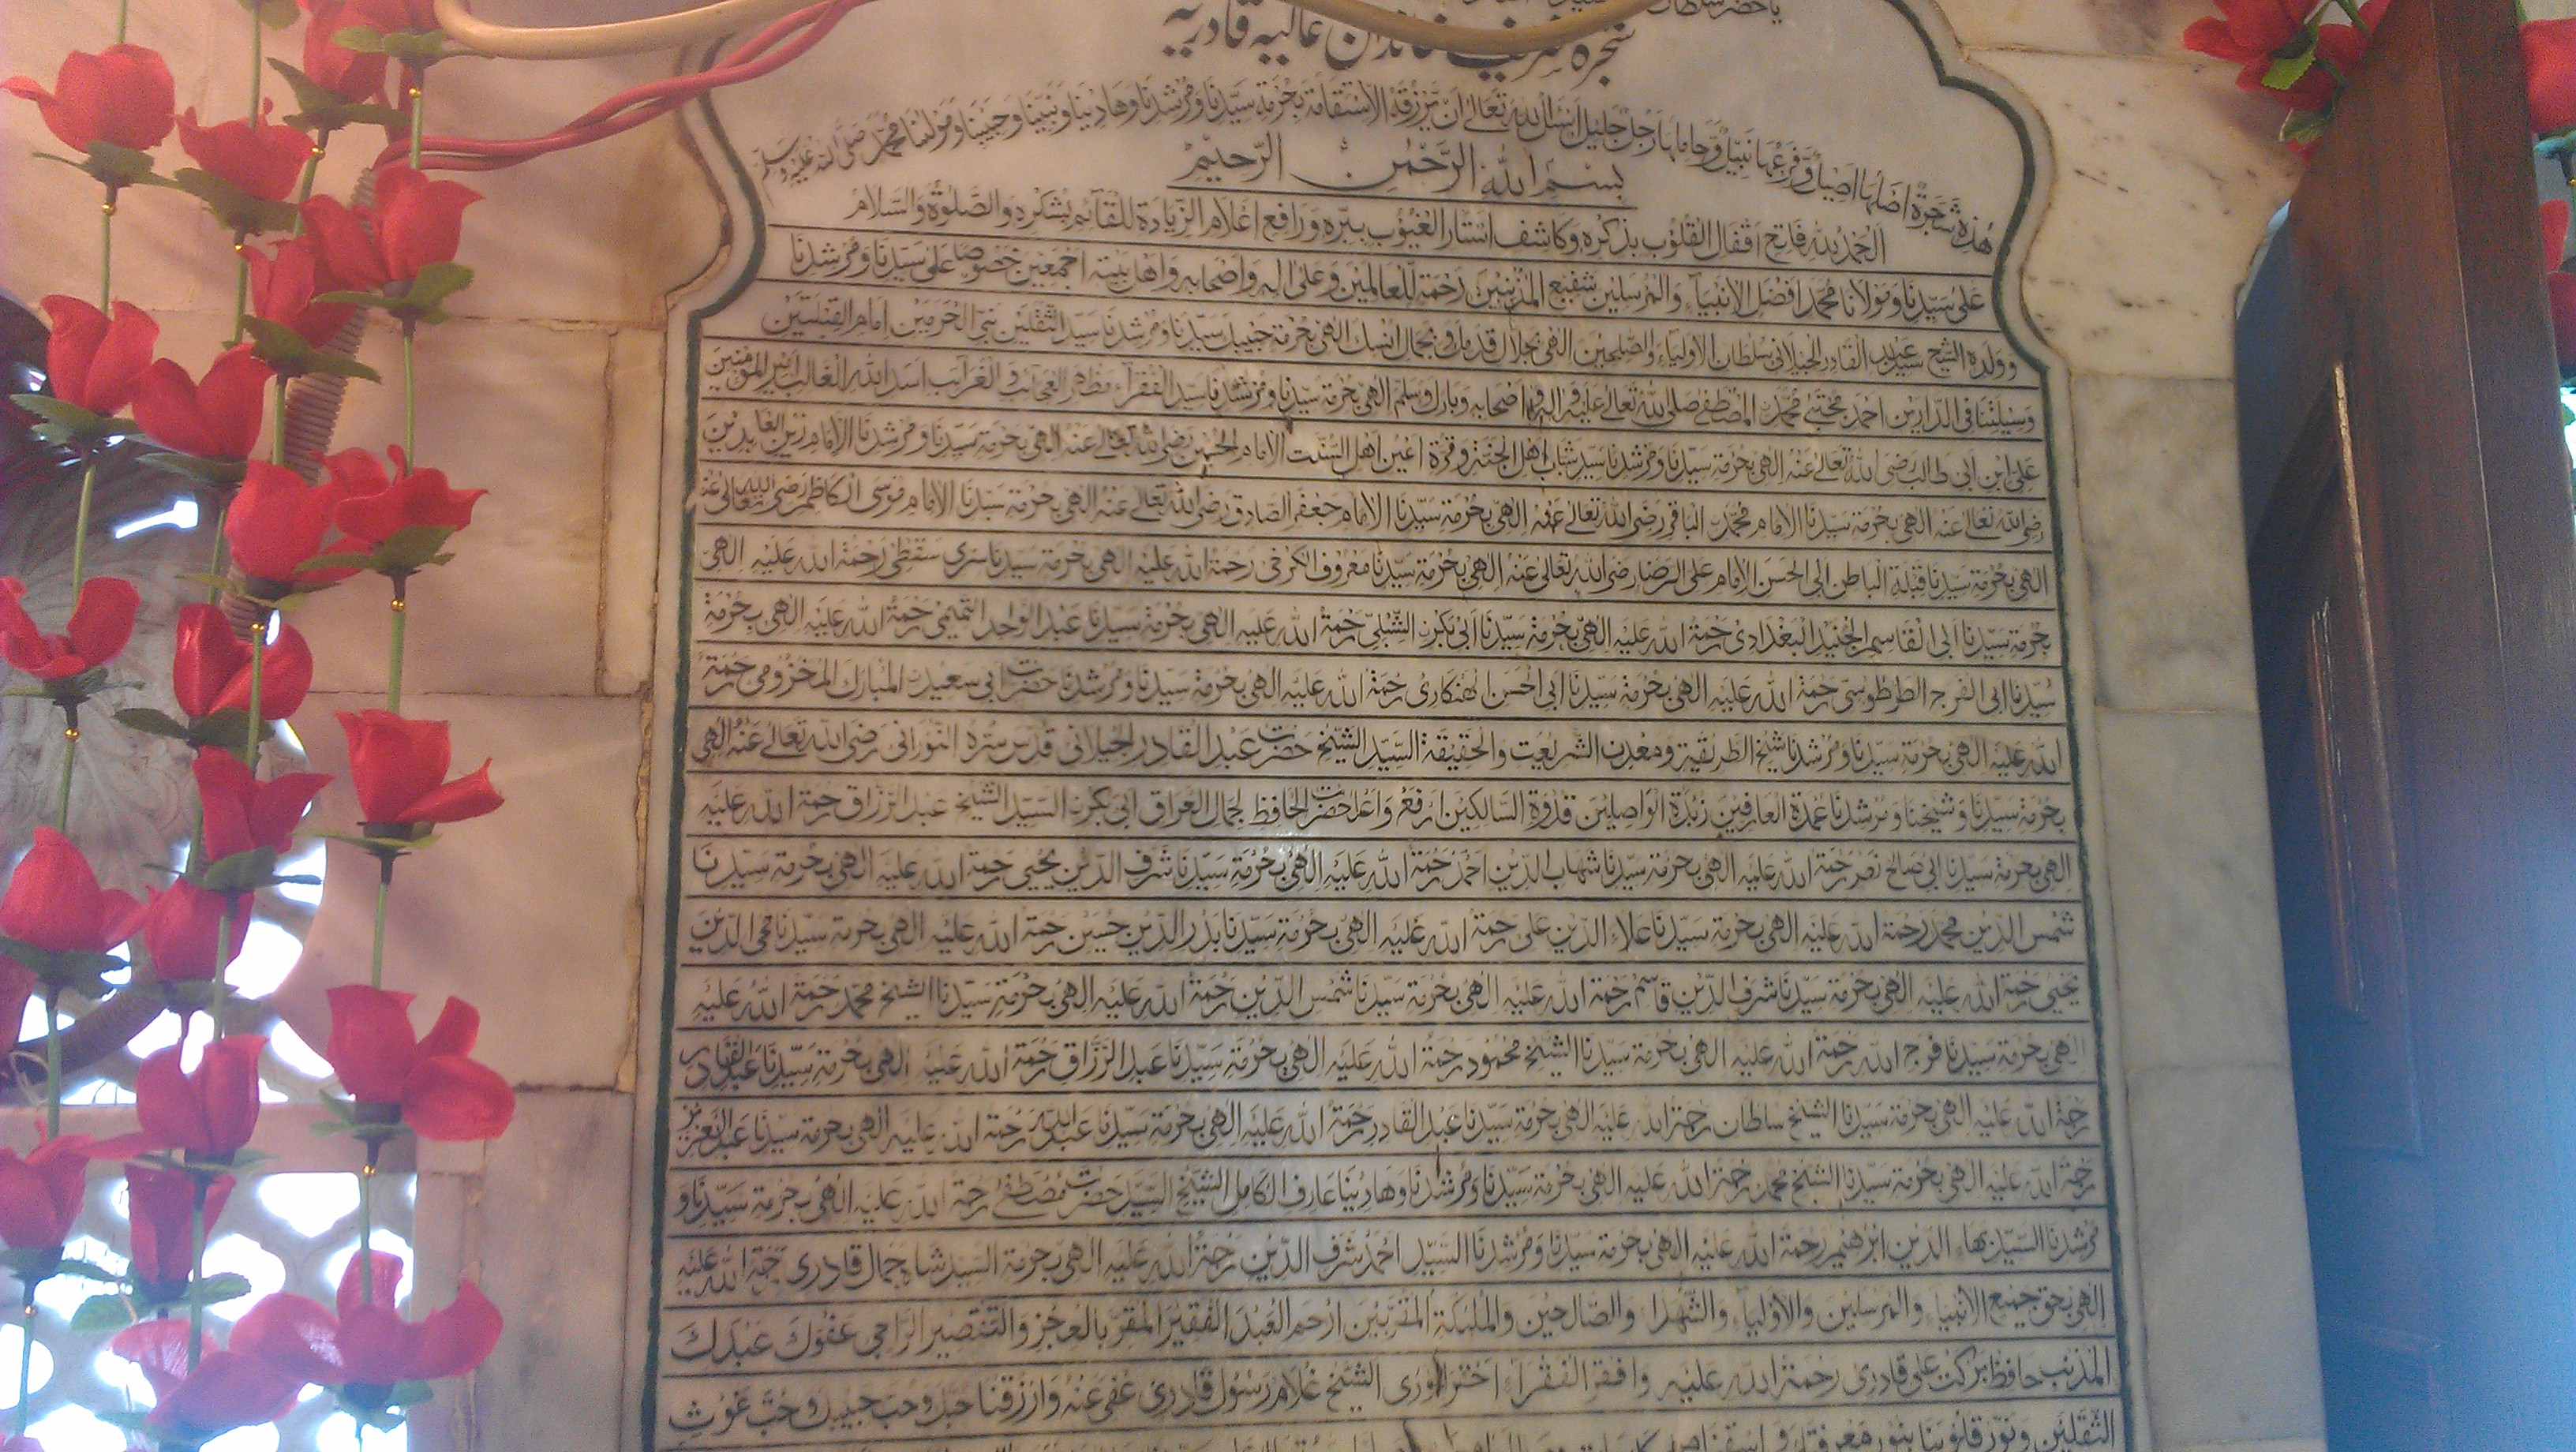 یا حضرت سلطان
شجرہ شریف خاندان عالیہ قادریہ
هٰذِهٖ شَجَرَةٌ اَصْلُهَا اَصِيْلٌ وَّفَرْعُهَا نَبِيْلٌ وَّحَامِلُهَا رَجُلٌ جَلِيْلٌ اَسْئَلُ اللّٰهَ تَعَالٰى اَنْ يَّرْزُقَهُ الْاِسْتِقَامَةَ بِحُرْمَةِ سَيِّدِنَا وَمُرْشِدِنَا وَهَادِيْنَا وَنَبِيِّنَا وَحَبِيْبِنَا وَمَوْلٰنَا مُحَمَّدٍ صَلَّى اللّٰهُ عَلَيْهِ وَسَلَّمَ
بِسْمِ اللّٰهِ الرَّحْمٰنِ الرَّحِيْمِ
اَلْحَمْدُ لِلّٰهِ فَاتِحِ اَقْفَالِ الْقُلُوْبِ بِذِكْرِهٖ وَكَاشِفِ اَسْتَارِ الْغُيُوْبِ بِبِرِّهٖ وَرَافِعِ اَعْلَامِ الزِّيَادَةِ لِلْقَآئِمِ بِشُكْرِهٖ وَالصَّلٰوةُ وَالسَّلَام
عَلٰى سَيِّدِنَا وَمَوْلَانَا مُحَمَّدٍ اَفْضَلِ الْاَنْبِيَآءِ وَالْمُرْسَلِيْنَ شَفِيْعِ الْمُذْنِبِيْنَ رَحْمَةٍ لِّلْعَالَمِيْنَ وَعَلٰى اٰلِهٖ وَاَصْحَابِهٖ وَاَهْلِ بَيْتِهٖ اَجْمَعِيْنَ خُصُوْصًا عَلٰى سَيِّدِنَا وَمُرْشِدِنَا
وَوَلَدِهِ الشَّيْخِ سَيِّد عَبْدِ الْقَادِرِ الْجِيْلَانِيِّ سُلْطَانِ الْاَوْلِيَآءِ وَالصَّالِحِيْنَ اِلٰهِيْ بِجَلَالِ قِدَمِكَ وَبِجَمَالِ اُنْسِكَ اِلٰهِيْ بِحُرْمَةِ حَبِيْبِكَ سَيِّدِنَا وَمُرْشِدِنَا سَيِّدِ الثَّقَلَيْنِ نَبِيِّ الْحَرَمَيْنِ اِمَامِ الْقِبْلَتَيْنِ
وَسِيْلَتِنَا فِي الدَّارَيْنِ اَحْمَدَ مُجْتَبٰى مُحَمَّدِنِ الْمُصْطَفٰى صَلَّى اللّٰهُ تَعَالٰى عَلَيْهِ وَاٰلِهٖ وَاَصْحَابِهٖ وَبَارَكَ وَسَلَّمَ اِلٰهِيْ بِحُرْمَةِ سَيِّدِنَا وَمُرْشِدِنَا سَيِّدِ الْفُقَرَآءِ مَظْهَرِ الْعَجَائِبِ وَالْغَرَائِبِ اَسَدِ اللّٰهِ الْغَالِبِ اَمِيْرِ الْمُؤْمِنِيْنَ
عَلِيِّ ابْنِ اَبِيْ طَالِبٍ رَضِيَ اللّٰهُ تَعَالٰى عَنْهُ اِلٰهِيْ بِحُرْمَةِ سَيِّدِنَا وَمُرْشِدِنَا سَيِّدِ شَبَابِ اَهْلِ الْجَنَّةِ وَقُرَّةِ اَعْيُنِ اَهْلِ السُّنَّتِ الْاِمَامِ الْحُسَيْنِ رَضِيَ اللّٰهُ تَعَالٰى عَنْهُ اِلٰهِيْ بِحُرْمَةِ سَيِّدِنَا وَمُرْشِدِنَا الْاِمَامِ زَيْنِ الْعَابِدِيْنَ
رَضِيَ اللّٰهُ تَعَالٰى عَنْهُ اِلٰهِيْ بِحُرْمَةِ سَيِّدِنَا الْاِمَامِ مُحَمَّدِنِ الْبَاقِرِ رَضِيَ اللّٰهُ تَعَالٰى عَنْهُ اِلٰهِيْ بِحُرْمَةِ سَيِّدِنَا الْاِمَامِ جَعْفَرِ الصَّادِقِ رَضِيَ اللّٰهُ تَعَالٰى عَنْهُ اِلٰهِيْ بِحُرْمَةِ سَيِّدِنَا الْاِمَامِ مُوْسَى الْكَاظِمِ رَضِيَ اللّٰهُ تَعَالٰى عَنْهُ
اِلٰهِيْ بِحُرْمَةِ سَيِّدِنَا قِبْلَةِ الْبَاطِنِ اَبِي الْحَسَنِ الْاِمَامِ عَلِيِّ الرِّضَا رَضِيَ اللّٰهُ تَعَالٰى عَنْهُ اِلٰهِيْ بِحُرْمَةِ سَيِّدِنَا مَعْرُوْفِ الْكَرْخِيْ رَحْمَةُ اللّٰهِ عَلَيْهِ اِلٰهِيْ بِحُرْمَةِ سَيِّدِنَا سَرِيْ سَقَطِيْ رَحْمَةُ اللّٰهِ عَلَيْهِ اِلٰهِيْ
بِحُرْمَةِ سَيِّدِنَا اَبِي الْقَاسِمِ الْجُنَيْدِ الْبَغْدَادِيْ رَحْمَةُ اللّٰهِ عَلَيْهِ اِلٰهِيْ بِحُرْمَةِ سَيِّدِنَا اَبِيْ بَكْرِنِ الشِّبْلِيْ رَحْمَةُ اللّٰهِ عَلَيْهِ اِلٰهِيْ بِحُرْمَةِ سَيِّدِنَا عَبْدِ الْوَاحِدِ التَّمِيْمِيْ رَحْمَةُ اللّٰهِ عَلَيْهِ اِلٰهِيْ بِحُرْمَةِ
سَيِّدِنَا اَبِي الْفَرَجِ الطَّرْطُوْسِيْ رَحْمَةُ اللّٰهِ عَلَيْهِ اِلٰهِيْ بِحُرْمَةِ سَيِّدِنَا اَبِي الْحَسَنِ الْهَنْكَارِيْ رَحْمَةُ اللّٰهِ عَلَيْهِ اِلٰهِيْ بِحُرْمَةِ سَيِّدِنَا وَمُرْشِدِنَا حَضْرَتِ اَبِيْ سَعِيْدِنِ الْمُبَارَكِ الْمَخْزُوْمِيْ رَحْمَةُ
اللّٰهِ عَلَيْهِ اِلٰهِيْ بِحُرْمَةِ سَيِّدِنَا وَمُرْشِدِنَا شَيْخِ الطَّرِيْقَةِ وَمَعْدِنِ الشَّرِيْعَتِ وَالْحَقِيْقَةِ السَّيِّدِ الشَّيْخِ حَضْرَتْ عَبْدِ الْقَادِرِ الْجِيْلَانِيْ قُدِّسَ سِرُّهُ النُّوْرَانِيْ رَضِيَ اللّٰهُ تَعَالٰى عَنْهُ اِلٰهِيْ
بِحُرْمَةِ سَيِّدِنَا وَشَيْخِنَا وَمُرْشِدِنَا عُمْدَةِ الْعَارِفِيْنَ زُبْدَةِ الْوَاصِلِيْنَ قُدْوَةِ السَّالِكِيْنَ اَرْفَعْ وَاَعْلٰحَضْرَتْ الْحَافِظِ لِجَمَالِ الْعِرَاقِ اَبِيْ بَكْرِنِ السَّيِّدِ الشَّيْخِ عَبْدِ الرَّزَّاقِ رَحْمَةُ اللّٰهِ عَلَيْهِ
اِلٰهِيْ بِحُرْمَةِ سَيِّدِنَا اَبِيْ صَالِحْ نَصْرْ رَحْمَةُ اللّٰهِ عَلَيْهِ اِلٰهِيْ بِحُرْمَةِ سَيِّدِنَا شَهَابِ الدِّيْنِ اَحْمَدْ رَحْمَةُ اللّٰهِ عَلَيْهِ اِلٰهِيْ بِحُرْمَةِ سَيِّدِنَا شَرَفِ الدِّيْنِ يَحْيٰى رَحْمَةُ اللّٰهِ عَلَيْهِ اِلٰهِيْ بِحُرْمَةِ سَيِّدِنَا
شَمْسِ الدِّيْنِ مُحَمَّدْ رَحْمَةُ اللّٰهِ عَلَيْهِ اِلٰهِيْ بِحُرْمَةِ سَيِّدِنَا عَلَاءِ الدِّيْنِ عَلِيْ رَحْمَةُ اللّٰهِ عَلَيْهِ اِلٰهِيْ بِحُرْمَةِ سَيِّدِنَا بَدْرِ الدِّيْنِ حُسَيْنْ رَحْمَةُ اللّٰهِ عَلَيْهِ اِلٰهِيْ بِحُرْمَةِ سَيِّدِنَا مُحْيِ الدِّيْنِ
يَحْيٰى رَحْمَةُ اللّٰهِ عَلَيْهِ اِلٰهِيْ بِحُرْمَةِ سَيِّدِنَا شَرَفِ الدِّيْنِ قَاسِمْ رَحْمَةُ اللّٰهِ عَلَيْهِ اِلٰهِيْ بِحُرْمَةِ سَيِّدِنَا شَمْسِ الدِّيْنِ رَحْمَةُ اللّٰهِ عَلَيْهِ اِلٰهِيْ بِحُرْمَةِ سَيِّدِنَا الشَّيْخِ مُحَمَّدْ رَحْمَةُ اللّٰهِ عَلَيْهِ
اِلٰهِيْ بِحُرْمَةِ سَيِّدِنَا فَرَجِ اللّٰهِ رَحْمَةُ اللّٰهِ عَلَيْهِ اِلٰهِيْ بِحُرْمَةِ سَيِّدِنَا الشَّيْخِ مَحْمُوْدْ رَحْمَةُ اللّٰهِ عَلَيْهِ اِلٰهِيْ بِحُرْمَةِ سَيِّدِنَا عَبْدِ الرَّزَّاقِ رَحْمَةُ اللّٰهِ عَلَيْهِ اِلٰهِيْ بِحُرْمَةِ سَيِّدِنَا عَبْدِ الْقَادِرِ
رَحْمَةُ اللّٰهِ عَلَيْهِ اِلٰهِيْ بِحُرْمَةِ سَيِّدِنَا الشَّيْخِ سُلْطَانْ رَحْمَةُ اللّٰهِ عَلَيْهِ اِلٰهِيْ بِحُرْمَةِ سَيِّدِنَا عَبْدِ الْقَادِرِ رَحْمَةُ اللّٰهِ عَلَيْهِ اِلٰهِيْ بِحُرْمَةِ سَيِّدِنَا عَبْدِ اللّٰهِ رَحْمَةُ اللّٰهِ عَلَيْهِ اِلٰهِيْ بِحُرْمَةِ سَيِّدِنَا عَبْدِ الْعَزِيْزِ
رَحْمَةُ اللّٰهِ عَلَيْهِ اِلٰهِيْ بِحُرْمَةِ سَيِّدِنَا الشَّيْخِ مُحَمَّدْ رَحْمَةُ اللّٰهِ عَلَيْهِ اِلٰهِيْ بِحُرْمَةِ سَيِّدِنَا وَمُرْشِدِنَا وَهَادِيْنَا عَارِفِ الْكَامِلِ الشَّيْخِ السَّيِّدِ حَضْرَتْ مُصْطَفٰى رَحْمَةُ اللّٰهِ عَلَيْهِ اِلٰهِيْ بِحُرْمَةِ سَيِّدِنَا وَ
مُرْشِدِنَا السَّيِّدْ بَهَاءِ الدِّيْنِ اِبْرٰهِيْمْ رَحْمَةُ اللّٰهِ عَلَيْهِ اِلٰهِيْ بِحُرْمَةِ سَيِّدِنَا وَمُرْشِدِنَا السَّيِّدِ اَحْمَدْ شَرَفِ الدِّيْنِ رَحْمَةُ اللّٰهِ عَلَيْهِ اِلٰهِيْ بِحُرْمَةِ السَّيِّدْ شَاهْ جَمَالْ قَادِرِيْ رَحْمَةُ اللّٰهِ عَلَيْهِ
اِلٰهِيْ بِحَقِّ جَمِيْعِ الْاَنْبِيَاءِ وَالْمُرْسَلِيْنَ وَالْاَوْلِيَاءِ وَالشُّهَدَا وَالصَّالِحِيْنَ وَالْمَلٰئِكَةِ الْمُقَرَّبِيْنَ اِرْحَمِ الْعَبْدَ الْفَقِيْرَ الْمُقِرَّ بِالْعَجْزِ وَالتَّقْصِيْرِ الرَّاجِيْ عَفْوَكَ عَبْدَكَ
الْمُذْنِبْ حَافِظْ بَرْكَتْ عَلِيْ قَادِرِيْ رَحْمَةُ اللّٰهِ عَلَيْهِ وَاَفْقَرُ الْفُقَرَاءِ اَحْقَرُ الْوَرٰى الشَّيْخِ غُلَامْ رَسُوْلْ قَادِرِيْ عُفِيَ عَنْهُ وَارْزُقْنَا حُبَّكَ وَحُبَّ حَبِيْبِكَ وَحُبَّ غَوْثِ
الثَّقَلَيْنِ وَنَوِّرْ قُلُوْبَنَا بِنُوْرِ مَعْرِفَتِكَ وَاسْقِنَا